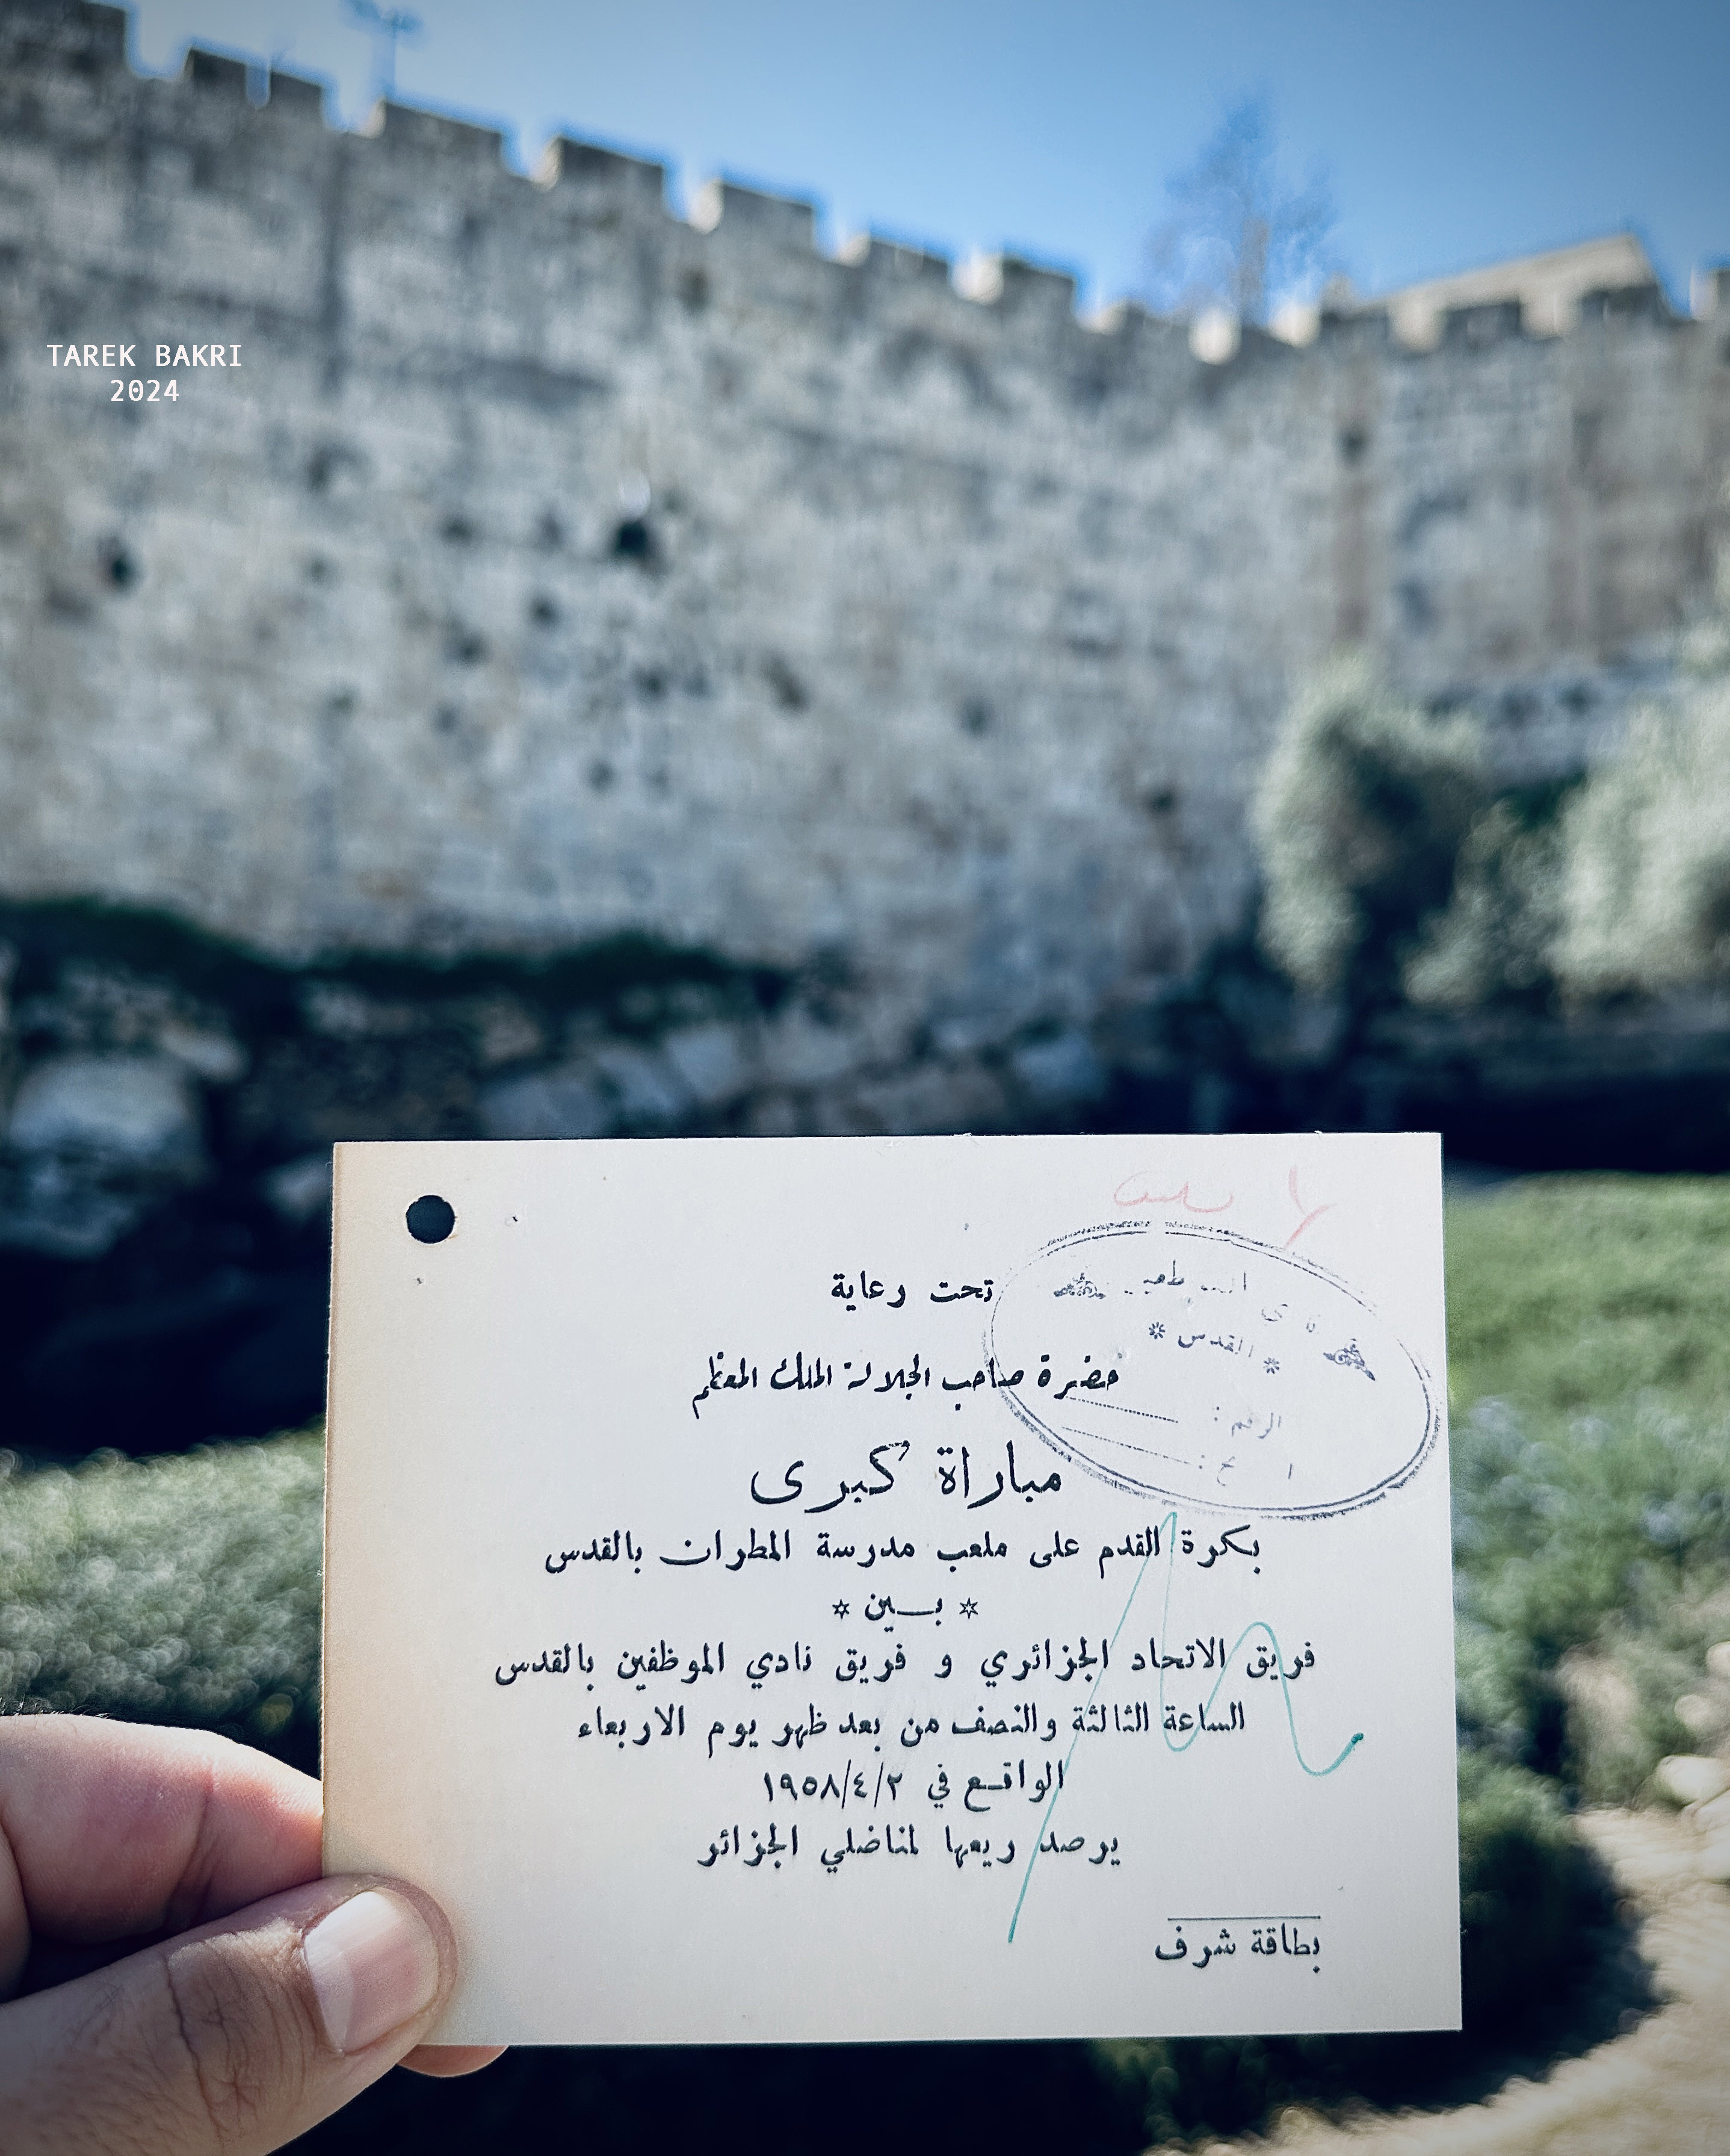 TAREK BAKRI
2024
تحت رعاية
حضرة صاحب الجلالة الملك المعظم
مباراة كبرى
بكرة القدم على ملعب مدرسة المطران بالقدس
* بين *
فريق الاتحاد الجزائري و فريق نادي الموظفين بالقدس
الساعة الثالثة والنصف من بعد ظهر يوم الاربعاء
الواقع في ١٩٥٨/٤/٢
يرصد ريعها لمناضلي الجزائر
بطاقة شرف
نادي
* القدس *
الرقم :